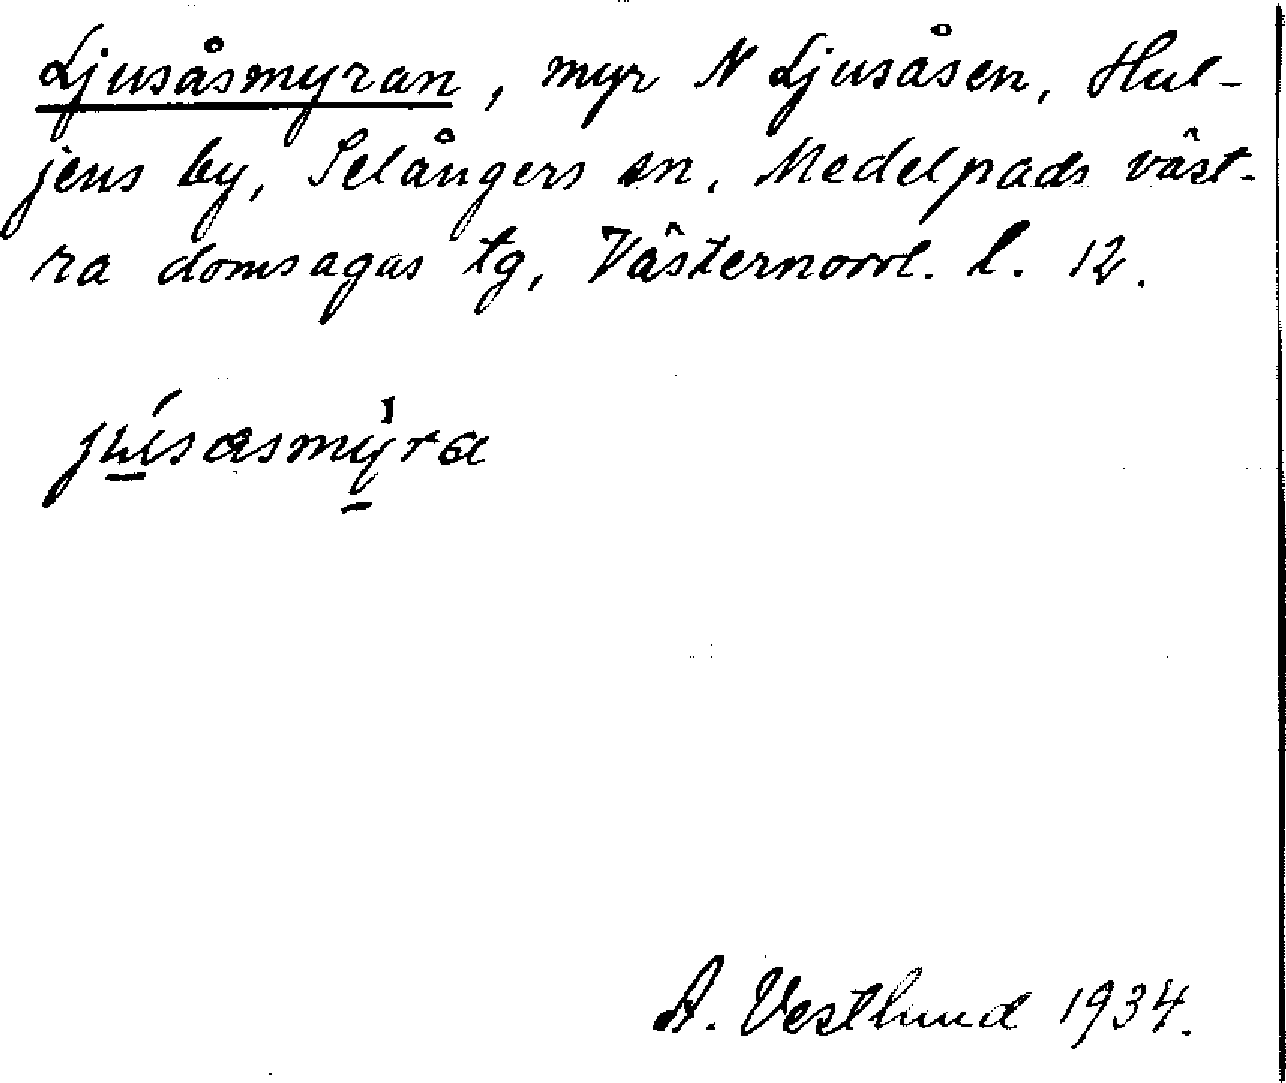 Ljusåsmyran, myr N Ljusåsen, Hul-
jens by, Selångers sn, Medelpads väst-
ra domsagas tg, Västernorrl. l. 12.
jusasmyra
A. Vestlund 1934.